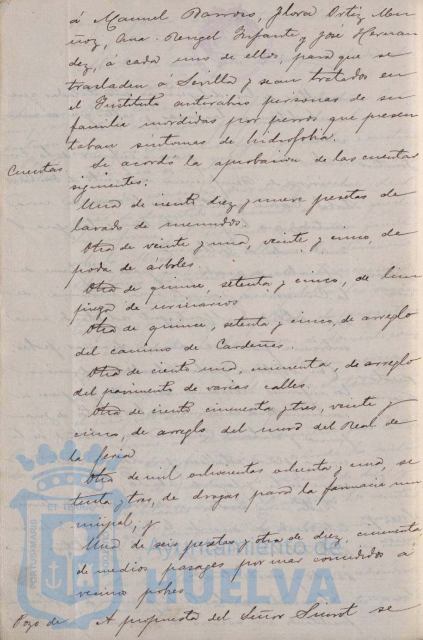 á Manuel Barroso, Flora Ortiz Mu-
ñoz, Ana Rengel Infante y José Hernan
dez, á cada uno de ellos, para que se
trasladen á Sevilla y sean tratados en
el Instituto antirabico personas de su
familia mordidas por perros que presen
taban sintomas de hidrofobia.
Cuentas Se acordó la aprobacion de las cuentas
siguientes:
Una de ciento diez y nueve pesetas de
lavado de menudos.
Otra de veinte y una, veinte y cinco, de
poda de árboles
Otra de quince, setenta y cinco, de lim
pieza de urinarios
Otra de quince, setenta y cinco, de arreglo
del camino de Cardeñas.
Otra de ciento una, cincuenta, de arreglo
del pavimento de varias calles.
Otra de ciento cincuenta y tres, veinte y
cinco, de arreglo del muro del Real de
la feria
Otra de mil ochocientas ochenta y una, se
tenta y tres, de drogas para la farmacia mu
nicipal, y
Una de seis pesetas y otra de diez, cincuenta,
de medios pasages por mar concedidos á
vecinos pobres
Pozo de A propuesta del Señor se
PORTUS MARIS ET TERRAE
Ayuntamiento de
HUELVA